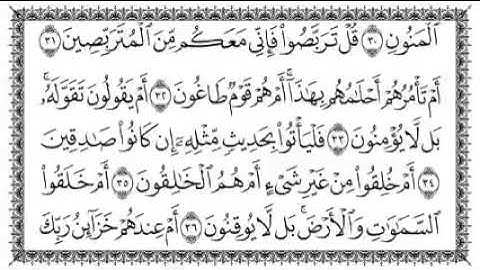 ٱلْمَنُونِ ٣٠ قُلْ تَرَبَّصُوا۟ فَإِنِّى مَعَكُم مِّنَ ٱلْمُتَرَبِّصِينَ ٣١
أَمْ تَأْمُرُهُمْ أَحْلَـٰمُهُم بِهَـٰذَآ ۚ أَمْ هُمْ قَوْمٌ طَاغُونَ ٣٢ أَمْ يَقُولُونَ تَقَوَّلَهُۥ ۚ
بَل لَّا يُؤْمِنُونَ ٣٣ فَلْيَأْتُوا۟ بِحَدِيثٍ مِّثْلِهِۦٓ إِن كَانُوا۟ صَـٰدِقِينَ
٣٤ أَمْ خُلِقُوا۟ مِنْ غَيْرِ شَىْءٍ أَمْ هُمُ ٱلْخَـٰلِقُونَ ٣٥ أَمْ خَلَقُوا۟
ٱلسَّمَـٰوَٰتِ وَٱلْأَرْضَ ۚ بَل لَّا يُوقِنُونَ ٣٦ أَمْ عِندَهُمْ خَزَآئِنُ رَبِّكَ